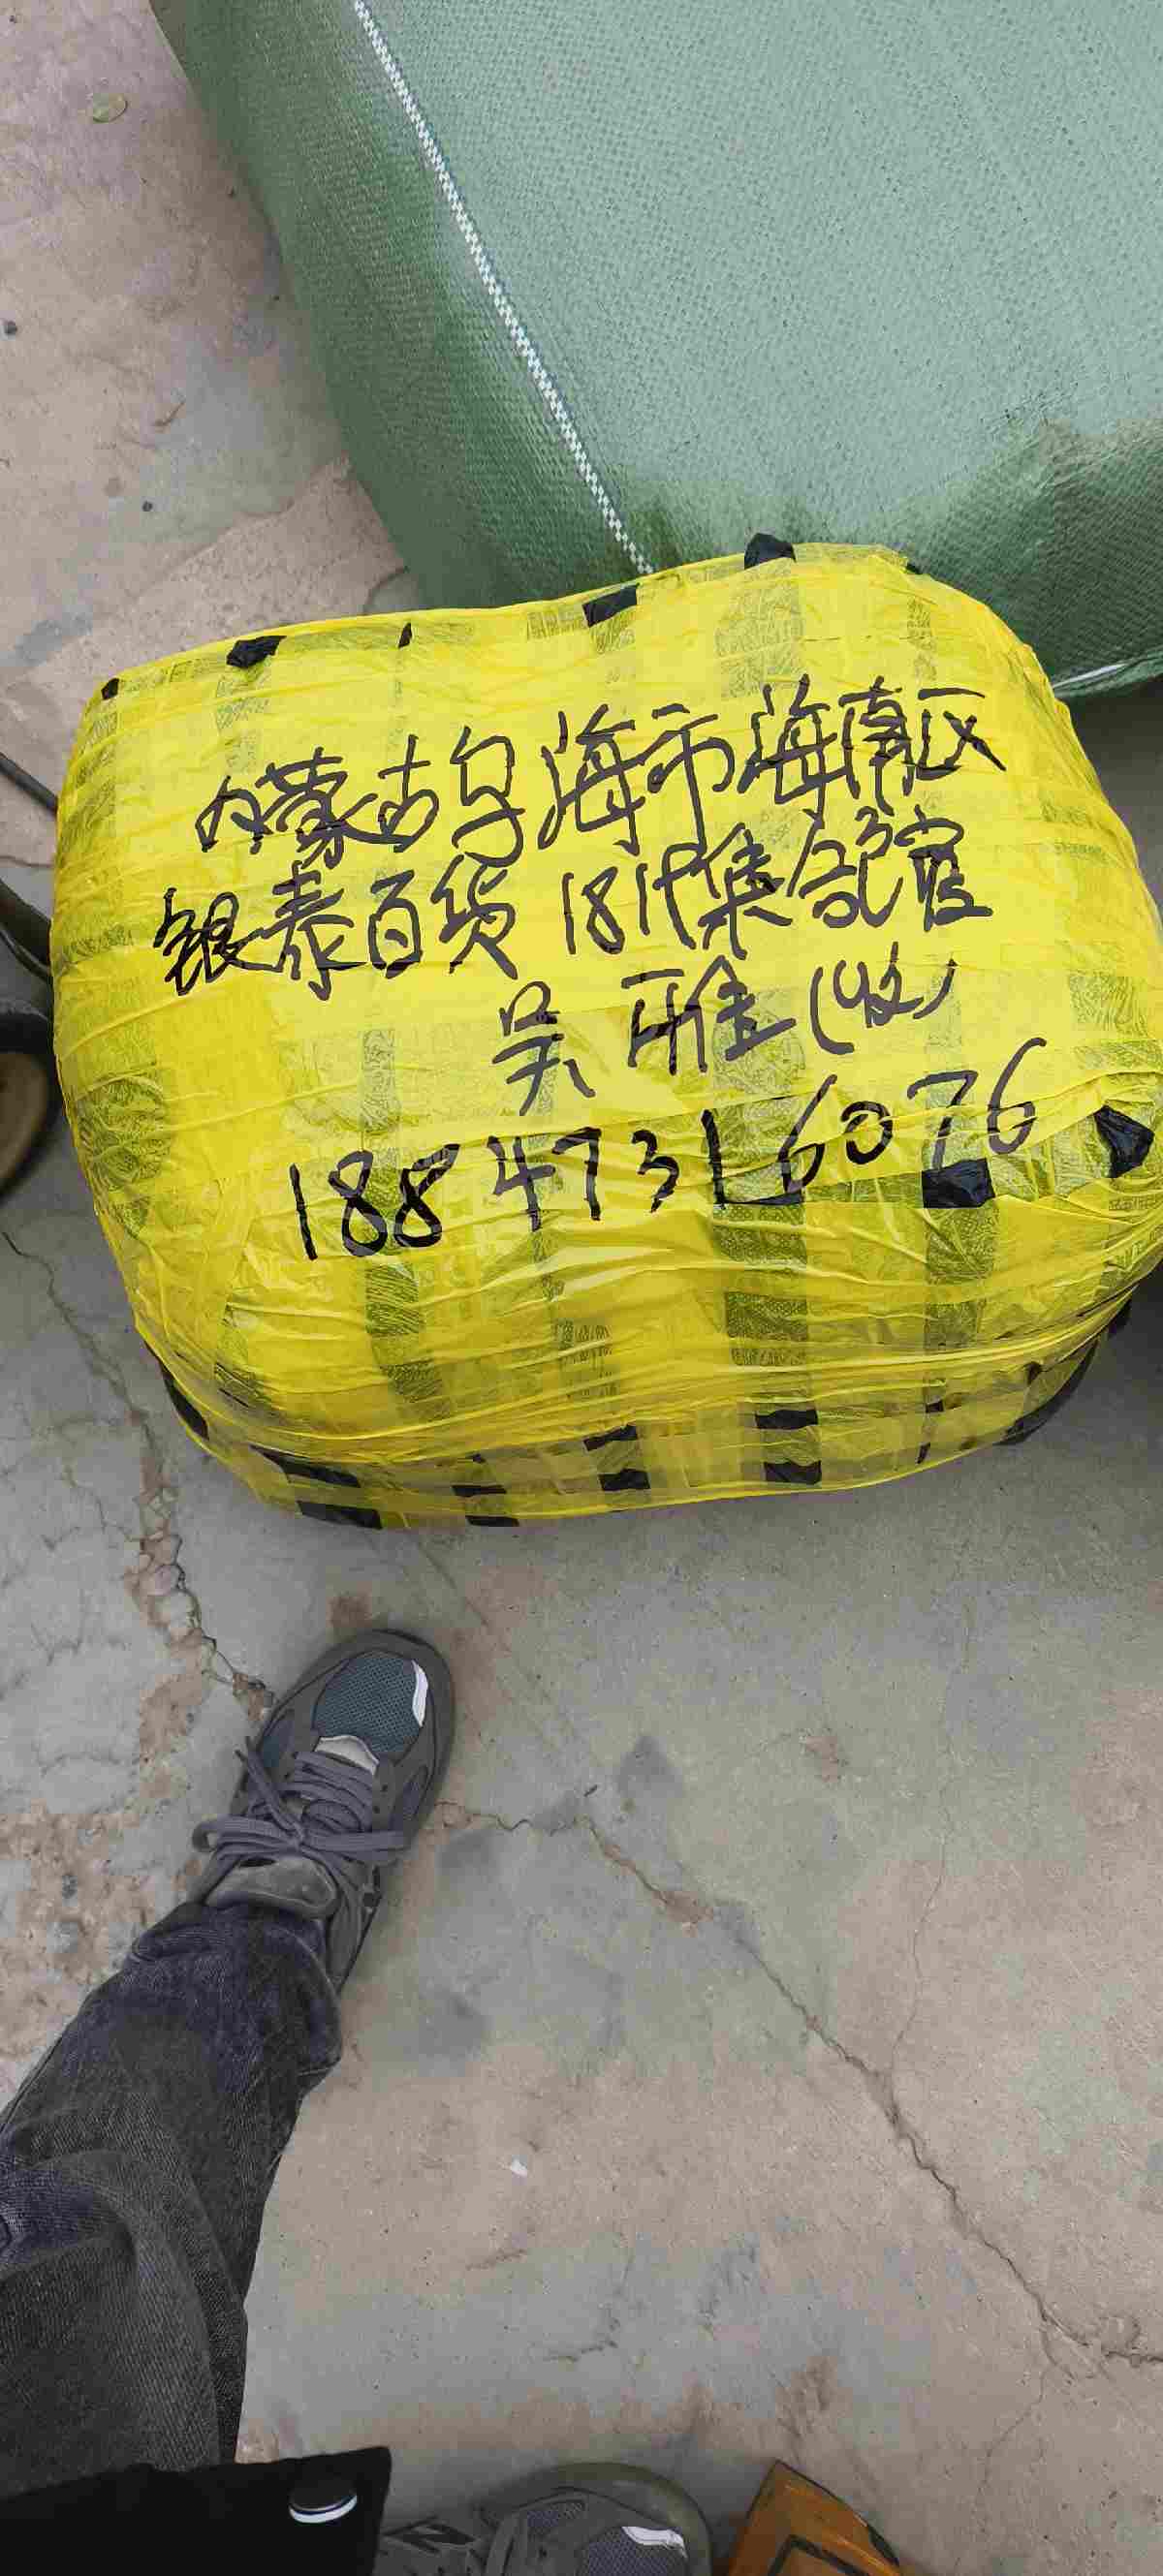 内蒙古乌海市海南区
银泰百货 18代集合馆
吴雅(收)
18847316076